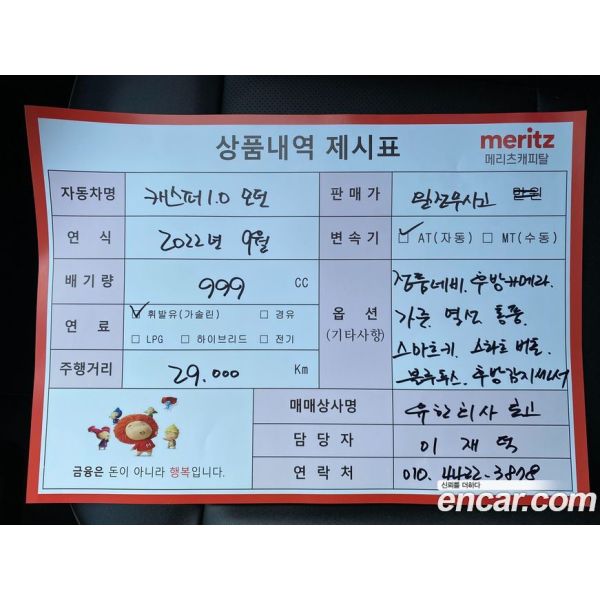 상품내역 제시표
meritz
메리츠캐피탈
자동차명 캐스퍼 1.0 모던
판매가 완전무사고 만원
연식 2022년 9월
변속기 ☑ AT(자동) ☐ MT(수동)
배기량 999 CC
연료 ☑ 휘발유(가솔린) ☐ 경유
☐ LPG ☐ 하이브리드 ☐ 전기
주행거리 29.000 Km
옵션
(기타사항)
정품네비. 후방카메라.
가죽. 열선 통풍.
스마트키. 스타트 버튼.
블루투스. 후방감지쎈서
매매상사명 유한회사
담당자 이재
연락처 010.4422-3878
금융은 돈이 아니라 행복입니다.
신뢰를 더하다
encar.com